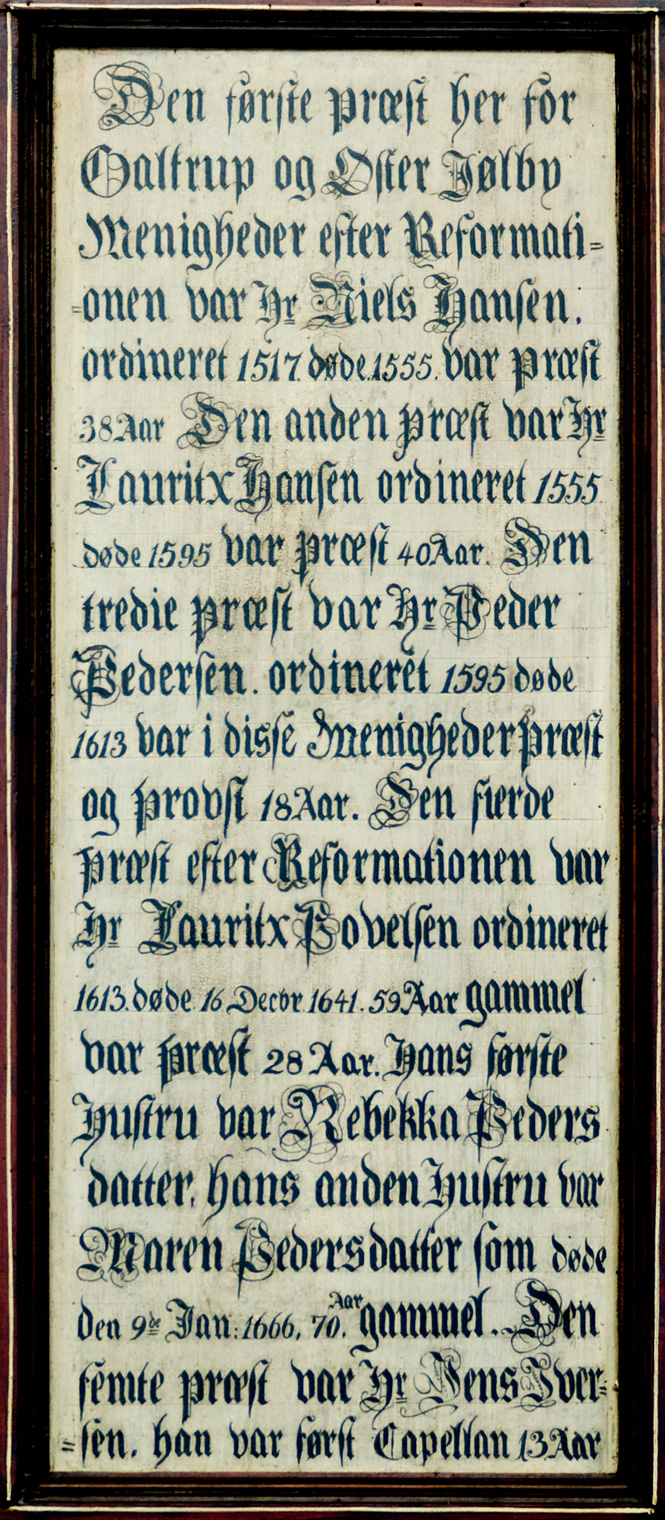 Den første præst her for
Galtrup og Øster Jølby
Menigheder efter Reformati=
=onen var Hr Niels Hansen.
ordineret 1517. døde.1555. var præst
38 Aar Den anden præst var Hr
Lauritx Hansen ordineret 1555
døde 1595 var præst 40 Aar. Den
tredie præst var Hr Peder
Pedersen. ordineret 1595 døde
1613 var i disse Menigheder præst
og provst 18 Aar. Den fierde
præst efter Reformationen var
Hr Lauritx Povelsen ordineret
1613. døde 16 Decbr 1641. 59 Aar gammel
var præst 28 Aar. Hans første
Hustru var Rebekka Peders
datter, hans anden Hustru var
Maren Pedersdatter som døde
den 9de Jan: 1666, 70. Aar gammel. Den
femte præst var Hr Jens Iver=
=sen. han var først Capellan 13 Aar